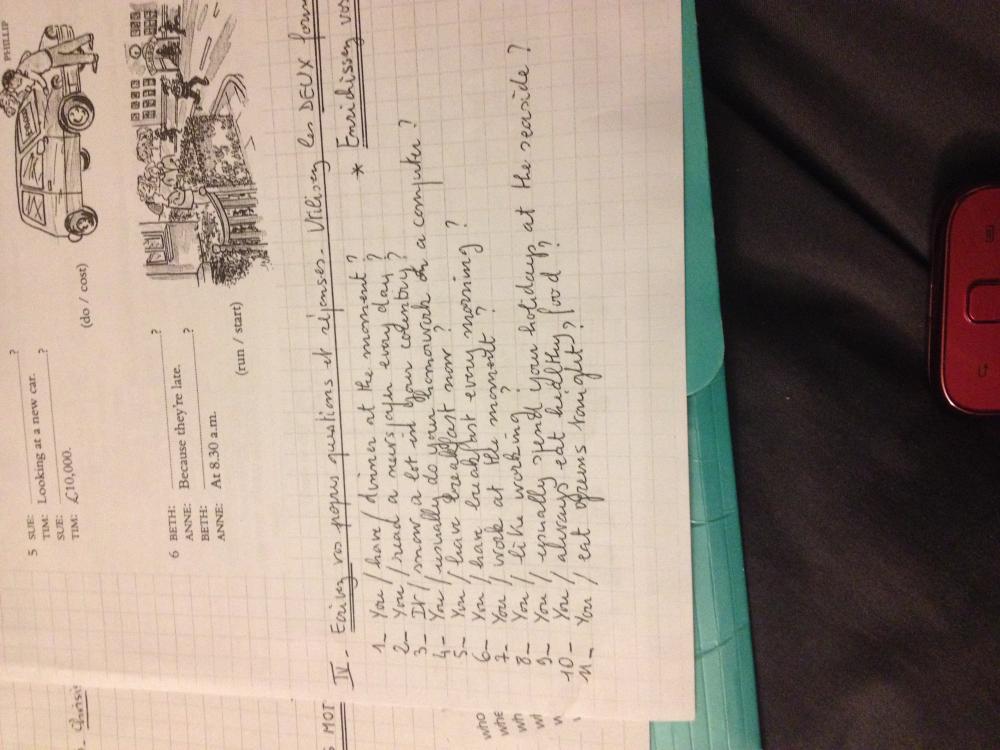 PHILLIP
5 SUE: ?
TIM: Looking at a new car.
SUE: ?
TIM: £10,000.
(do / cost)
6 BETH: ?
ANNE: Because they're late.
BETH: ?
ANNE: At 8.30 a.m.
(run / start)
IV - Ecrivez vos propres questions et réponses. Utilisez les DEUX form
* Enrichissez vos
1 - You / have / dinner at the moment ?
2 - You / read a newspaper every day ?
3 - It / snow a lot in your country ?
4 - You / usually do your homework on a computer ?
5 - You / have breakfast now ?
6 - You / have breakfast every morning ?
7 - You / work at the moment ?
8 - You / like working ?
9 - You / usually spend your holidays at the seaside ?
10 - You / always eat healthy food ?
11 - You / eat greens tonight ?
MOT
who
whe
wh
wh
w